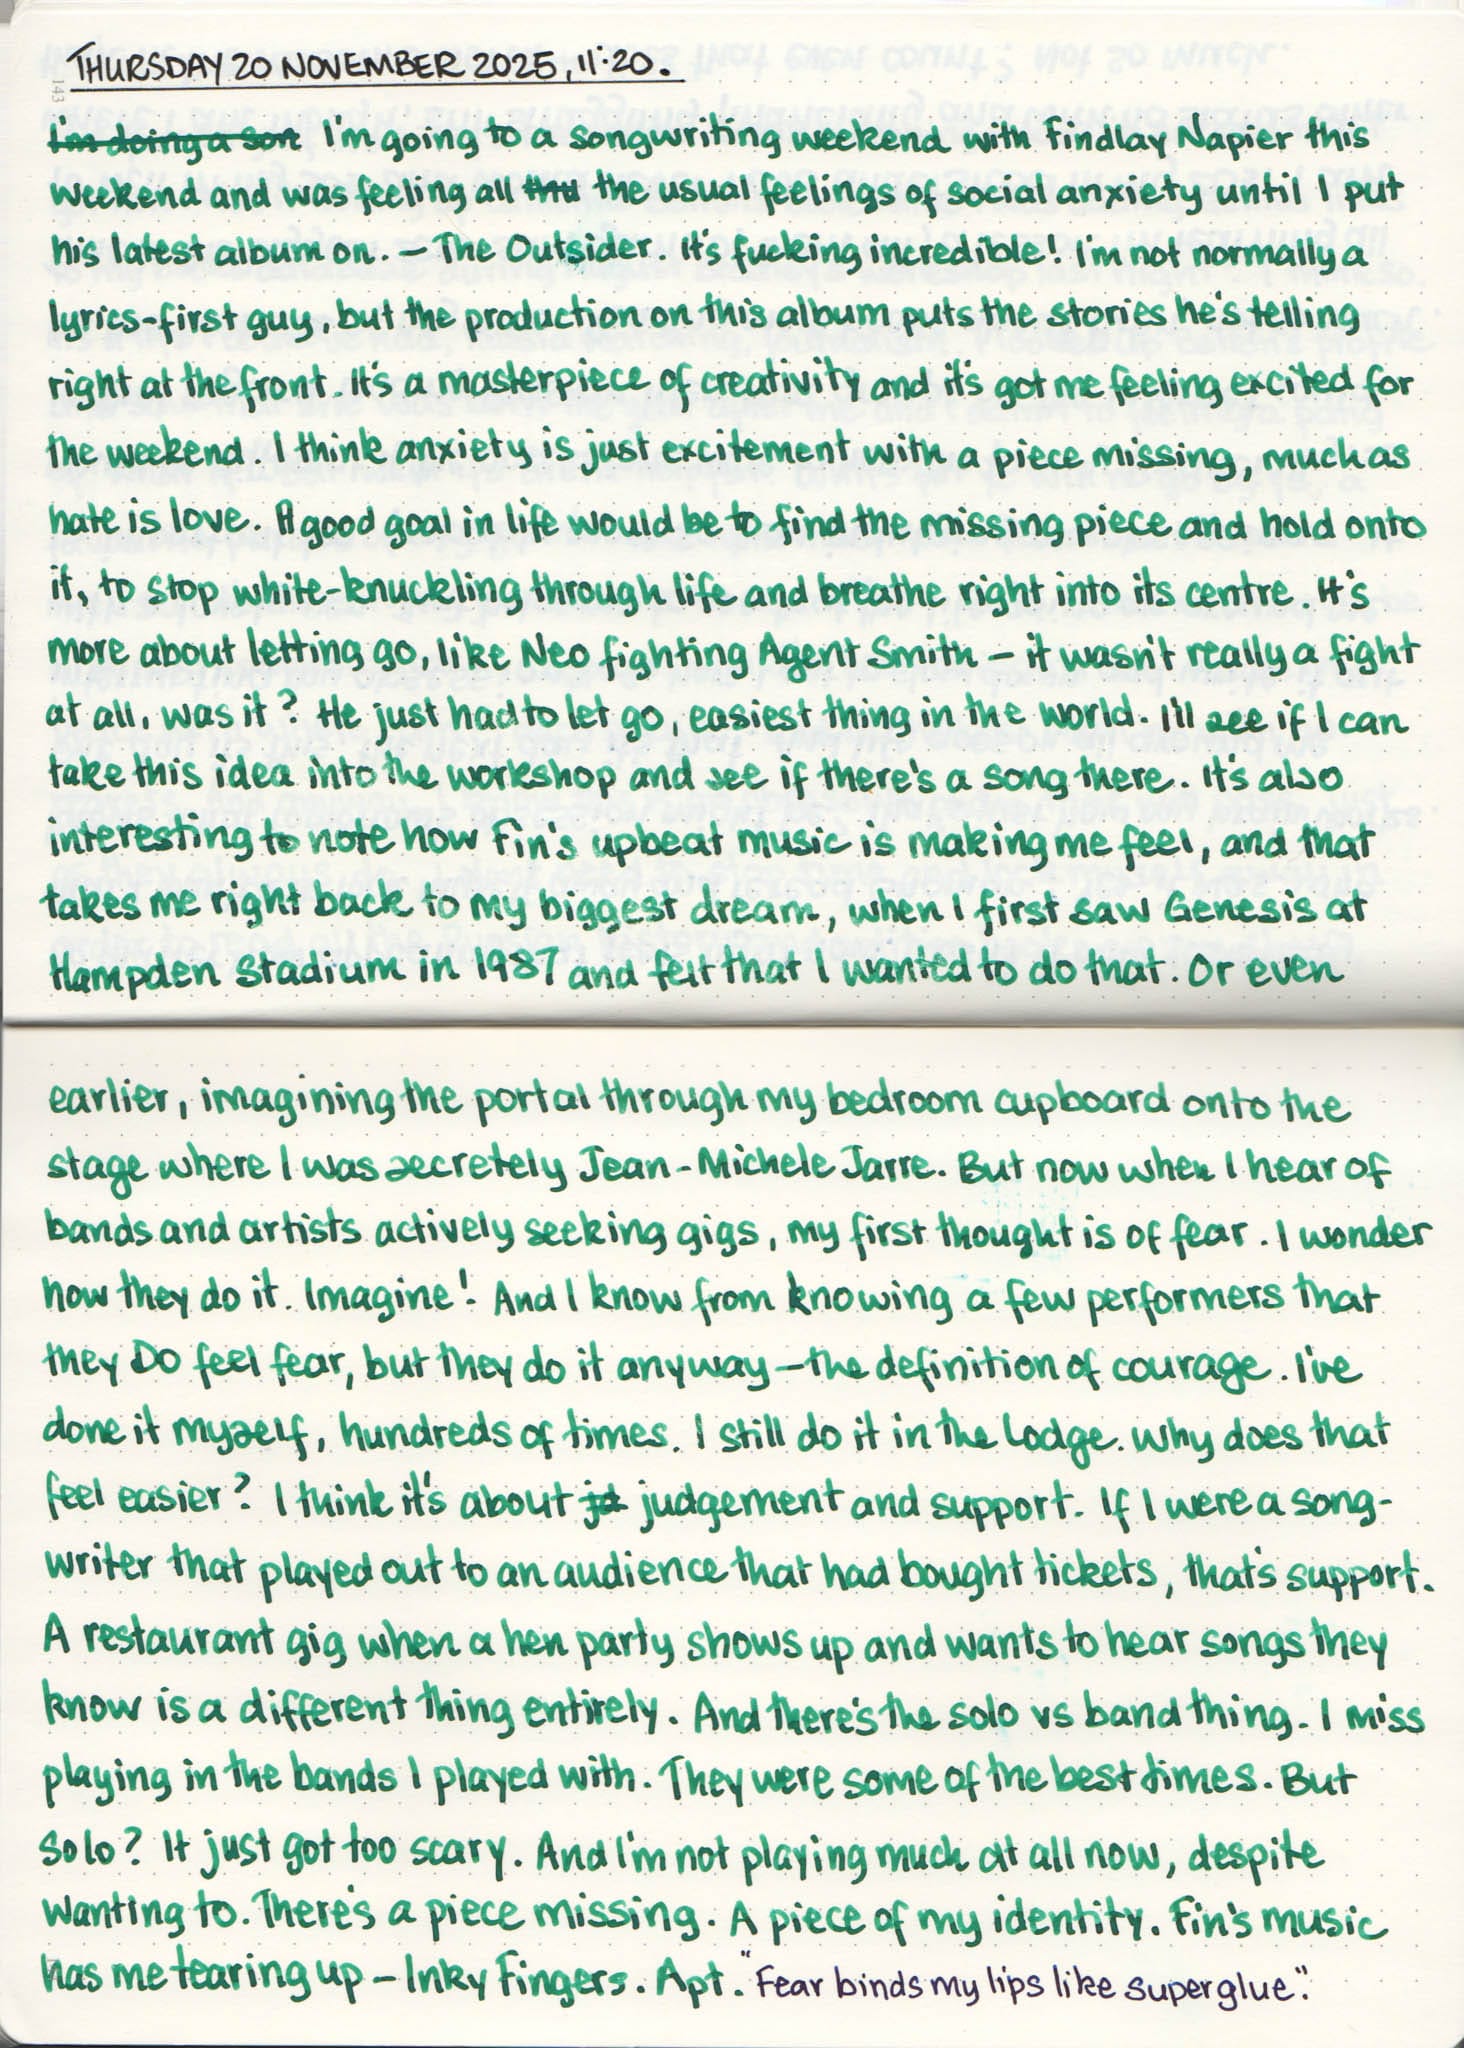 THURSDAY 20 NOVEMBER 2025, 11:20.
143
I'm doing a son I'm going to a songwriting weekend with Findlay Napier this
weekend and was feeling all the usual feelings of social anxiety until I put
his latest album on. – The Outsider. It's fucking incredible! I'm not normally a
lyrics-first guy, but the production on this album puts the stories he's telling
right at the front. It's a masterpiece of creativity and it's got me feeling excited for
the weekend. I think anxiety is just excitement with a piece missing, much as
hate is love. A good goal in life would be to find the missing piece and hold onto
it, to stop white-knuckling through life and breathe right into its centre. It's
more about letting go, like Neo fighting Agent Smith – it wasn't really a fight
at all, was it? He just had to let go, easiest thing in the world. I'll see if I can
take this idea into the workshop and see if there's a song there. It's also
interesting to note how Fin's upbeat music is making me feel, and that
takes me right back to my biggest dream, when I first saw Genesis at
Hampden Stadium in 1987 and felt that I wanted to do that. Or even
earlier, imagining the portal through my bedroom cupboard onto the
stage where I was secretely Jean-Michele Jarre. But now when I hear of
bands and artists actively seeking gigs, my first thought is of fear. I wonder
how they do it. Imagine! And I know from knowing a few performers that
they DO feel fear, but they do it anyway – the definition of courage. I've
done it myself, hundreds of times. I still do it in the Lodge. Why does that
feel easier? I think it's about judgement and support. If I were a song-
writer that played out to an audience that had bought tickets, that's support.
A restaurant gig when a hen party shows up and wants to hear songs they
know is a different thing entirely. And there's the solo vs band thing. I miss
playing in the bands I played with. They were some of the best times. But
solo? It just got too scary. And I'm not playing much at all now, despite
wanting to. There's a piece missing. A piece of my identity. Fin's music
has me tearing up – Inky Fingers. Apt. "Fear binds my lips like superglue".